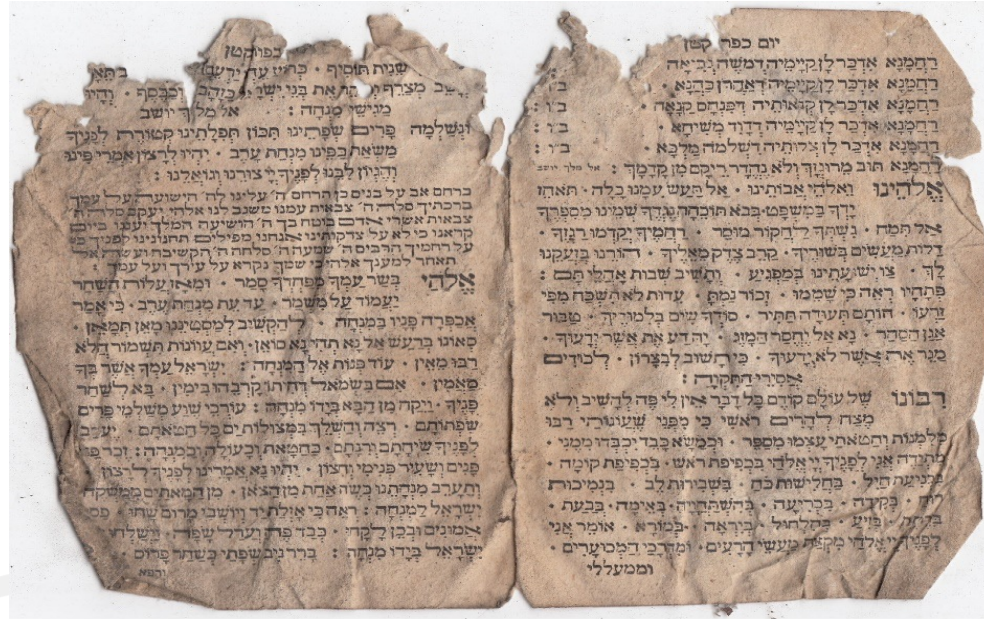 יום כפר קטן
רַחֲמָנָא אִדְכַּר לָן קְיָמֵיהּ דְמֹשֶׁה נְבִיאָה
רַחֲמָנָא אִדְכַּר לָן קְיָמֵיהּ דְאַהֲרֹן כַּהֲנָא . ב׳ ו׳
רַחֲמָנָא אִדְכַּר לָן קַנָאוּתֵיהּ דְפִנְחָס קַנָאָה . ב׳ ו :
רַחֲמָנָא אִדְכַּר לָן קְיָמֵיהּ דְדָוִד מְשִׁיחָא . ב׳ו :
רַחֲמָנָא אִדְכַּר לָן צְלוֹתֵיהּ דִשְׁלֹמֹה מַלְכָּא . ב׳ ו :
רַחֲמָנָא תּוּב מֵרוּגְזָךְ וְלָא נֶהֱדַר רֵיקָם מִן קֳדָמָךְ : אל מלך יושב
אֱלֹהֵינוּ וֵאלֹהֵי אֲבוֹתֵינוּ . אַל תַּעַשׂ עִמָּנוּ כָּלָה . תֹּאחֵז
יָדְךָ בַּמִּשְׁפָּט . בְּבֹא תוֹכֵחָה נֶגְדֶּךָ שְׁמֵינוּ מִסִּפְרְךָ
אַל תֶּמַח . גִּשְׁתְּךָ לַחֲקוֹר מוּסָר . רַחֲמֶיךָ יְקַדְּמוּ רָגְזֶךָ .
דַלּוּת מַעֲשִׂים בְּשׁוּרֶיךָ . קָרֵב צֶדֶק מֵאֵלֶיךָ . הוֹרֵנוּ בְּזַעֲקֵנוּ
לָךְ . צַו יְשׁוּעָתֵינוּ בְּמַפְגִּיעַ . וְתָשִׁיב שְׁבוּת אָהֳלֵי תָּם :
פְּתָחָיו רְאֵה כִּי שָׁמֵמוּ . זְכוֹר נָאַמְתָּ . עֵדוּת לֹא תִשָּׁכַח מִפִּי
זַרְעוֹ . חוֹתָם תְּעוּדָה תַּתִּיר . סוֹדְךָ שִׂים בְּלִמּוּדֶיךָ . טַבּוּר
אַגַּן הַסַּהַר . נָא אַל יֶחְסַר הַמָּזֶג . יָהּ דַע אֶת אֲשֶׁר יְדָעוּךָ .
מַגֵּר אֶת אֲשֶׁר לֹא יְדָעוּךָ . כִּי תָשׁוּב לְבִצָּרוֹן . לְכוּדִים
אֲסִירֵי הַתִּקְוָה :
רִבּוֹנוֹ שֶׁל עוֹלָם קוֹדֵם כָּל דָּבָר אֵין לִי פֶּה לְהָשִׁיב וְלֹא
מֵצַח לְהָרִים רֹאשִׁי כִּי מִפְּנֵי שֶׁעֲוֹנוֹתַי רַבּוּ
מִלִּמְנוֹת וְחַטֹּאתַי עָצְמוּ מִסַּפֵּר . וּכְמַשָּׂא כָבֵד יִכְבְּדוּ מִמֶּנִּי .
מִתְוַדֶּה אֲנִי לְפָנֶיךָ יְיָ אֱלֹהַי בִּכְפִיפַת רֹאשׁ . בִּכְפִיפַת קוֹמָה .
בִּכְנִיעַת חַיִל . בַּחֲלִישׁוּת כֹּחַ . בִּשְׁבִירוּת לֵב . בִּנְמִיכוּת
רוּחַ . בְּקִידָה . בִּכְרִיעָה . בְּהִשְׁתַּחֲוָיָה . בְּאֵימָה . בְּבִעַת .
בְּזִיעַ . בְּחַלְחוּל . בְּיִרְאָה . בְּמוֹרָא . אוֹמַר אֲנִי
לְפָנֶיךָ יְיָ אֱלֹהַי מִקְצָת מַעֲשַׂי הָרָעִים . וּמִדְּרָכַי הַמְכוֹעָרִים .
וממעללי
שֵׁנִית תּוֹסִיף
וְיֵשֵׁב מְצָרֵף בְּנֵי יִשְׂרָאֵל כַּזָּהָב וְכַכָּסֶף . וְהָיוּ
מַגִּישֵׁי מִנְחָה : אל מלך יושב
וּנְשַׁלְּמָה פָרִים שְׂפָתֵינוּ תִּכּוֹן תְּפִלָּתֵינוּ קְטוֹרֶת לְפָנֶיךָ
מַשְׂאַת כַּפֵּינוּ מִנְחַת עָרֶב . יִהְיוּ לְרָצוֹן אִמְרֵי פִינוּ
וְהֶגְיוֹן לִבֵּנוּ לְפָנֶיךָ יְיָ צוּרֵנוּ וְגוֹאֲלֵינוּ :
כרחם אב על בנים כן תרחם ה׳ עלינו לה׳ הישועה על עמך
ברכתיך סלה ה׳ צבאות עמנו משגב לנו אלהי יעקב סלה ה׳
צבאות אשרי אדם בוטח בך ה׳ הושיעה המלך יעננו ביום
קראנו כי לא על צדקותינו אנחנו מפילים תחנונינו לפניך כי
על רחמיך הרבים ה׳ שמעה ה׳ סלחה ה׳ הקשיבה ועשה אל
תאחר למענך אלהי כי שמך נקרא על עירך ועל עמך :
אֱלֹהַי בְּשַׂר עַמְּךָ מִפַּחְדְּךָ סָמַר . וּמֵאָז עֲלוֹת הַשַּׁחַר
יַעֲמוֹד עַל מִשְׁמָר . עַד עֵת מִנְחַת עָרֶב . כִּי אָמַר
אֲכַפְּרָה פָנָיו בַּמִּנְחָה . לְהַקְשִׁיב לְמַסְטִינֵנוּ מֵאֵן תְּמָאֵן .
סָאוֹנוּ בְּרַעַשׁ אַל נָא תְּהִי נָא סוֹאֵן . וְאִם עֲוֹנוֹת תִּשְׁמוֹר הֲלֹא
רַבּוּ מֵאַיִן . עוֹד פְּנוֹת אֶל הַמִּנְחָה : יִשְׂרָאֵל עַמְּךָ אֲשֶׁר בְּךָ
מַאֲמִין . אִם בִּשְׂמֹאל דְּחִיתוֹ קָרְבֵהוּ בְיָמִין . בָּא לְשַׁחֵר
פָּנֶיךָ . וַיִּקַּח מִן הַבָּא בְיָדוֹ מִנְחָה : עוֹרְכֵי שֶׁוַע מְשַׁלְּמֵי פָרִים
שְׂפָתוֹתָם . רְצֵה וְהַשְׁלֵךְ בִּמְצוּלוֹת יָם כָּל חַטֹּאתָם . יֶעֱרַב
לְפָנֶיךָ שִׂיחָתָם וְרִנָּתָם . כַּחַטָּאת וְכָעוֹלָה וְכַמִּנְחָה : זְכוֹר פַּר
פְּנִים וְשָׂעִיר פְּנִימִי וְחִצוֹן . יִהְיוּ נָא אֲמָרֵינוּ לְפָנֶיךָ לְרָצוֹן .
וְתֶעֱרַב מִנְחָתֵנוּ כְּשֶׂה אַחַת מִן הַצֹּאן . מִן הַמָּאתַיִם מִמַּשְׁקֵה
יִשְׂרָאֵל לַמִּנְחָה : רְאֵה כִּי אָזְלַת יָד וְיוֹשְׁבֵי מָרוֹם שַׁחוּ . פַּסּוּ
אֱמוּנִים וּבְכֵן לֻקָּחוּ . כְּבַד פֶּה וַעֲרַל שָׂפָה . וַיִּשְׁלְחוּ
יִשְׂרָאֵל בְּיָדוֹ מִנְחָה : בְּרוֹר נִיב שְׂפָתַי כְּשַׁחַר פָּרוּס .
ורפא